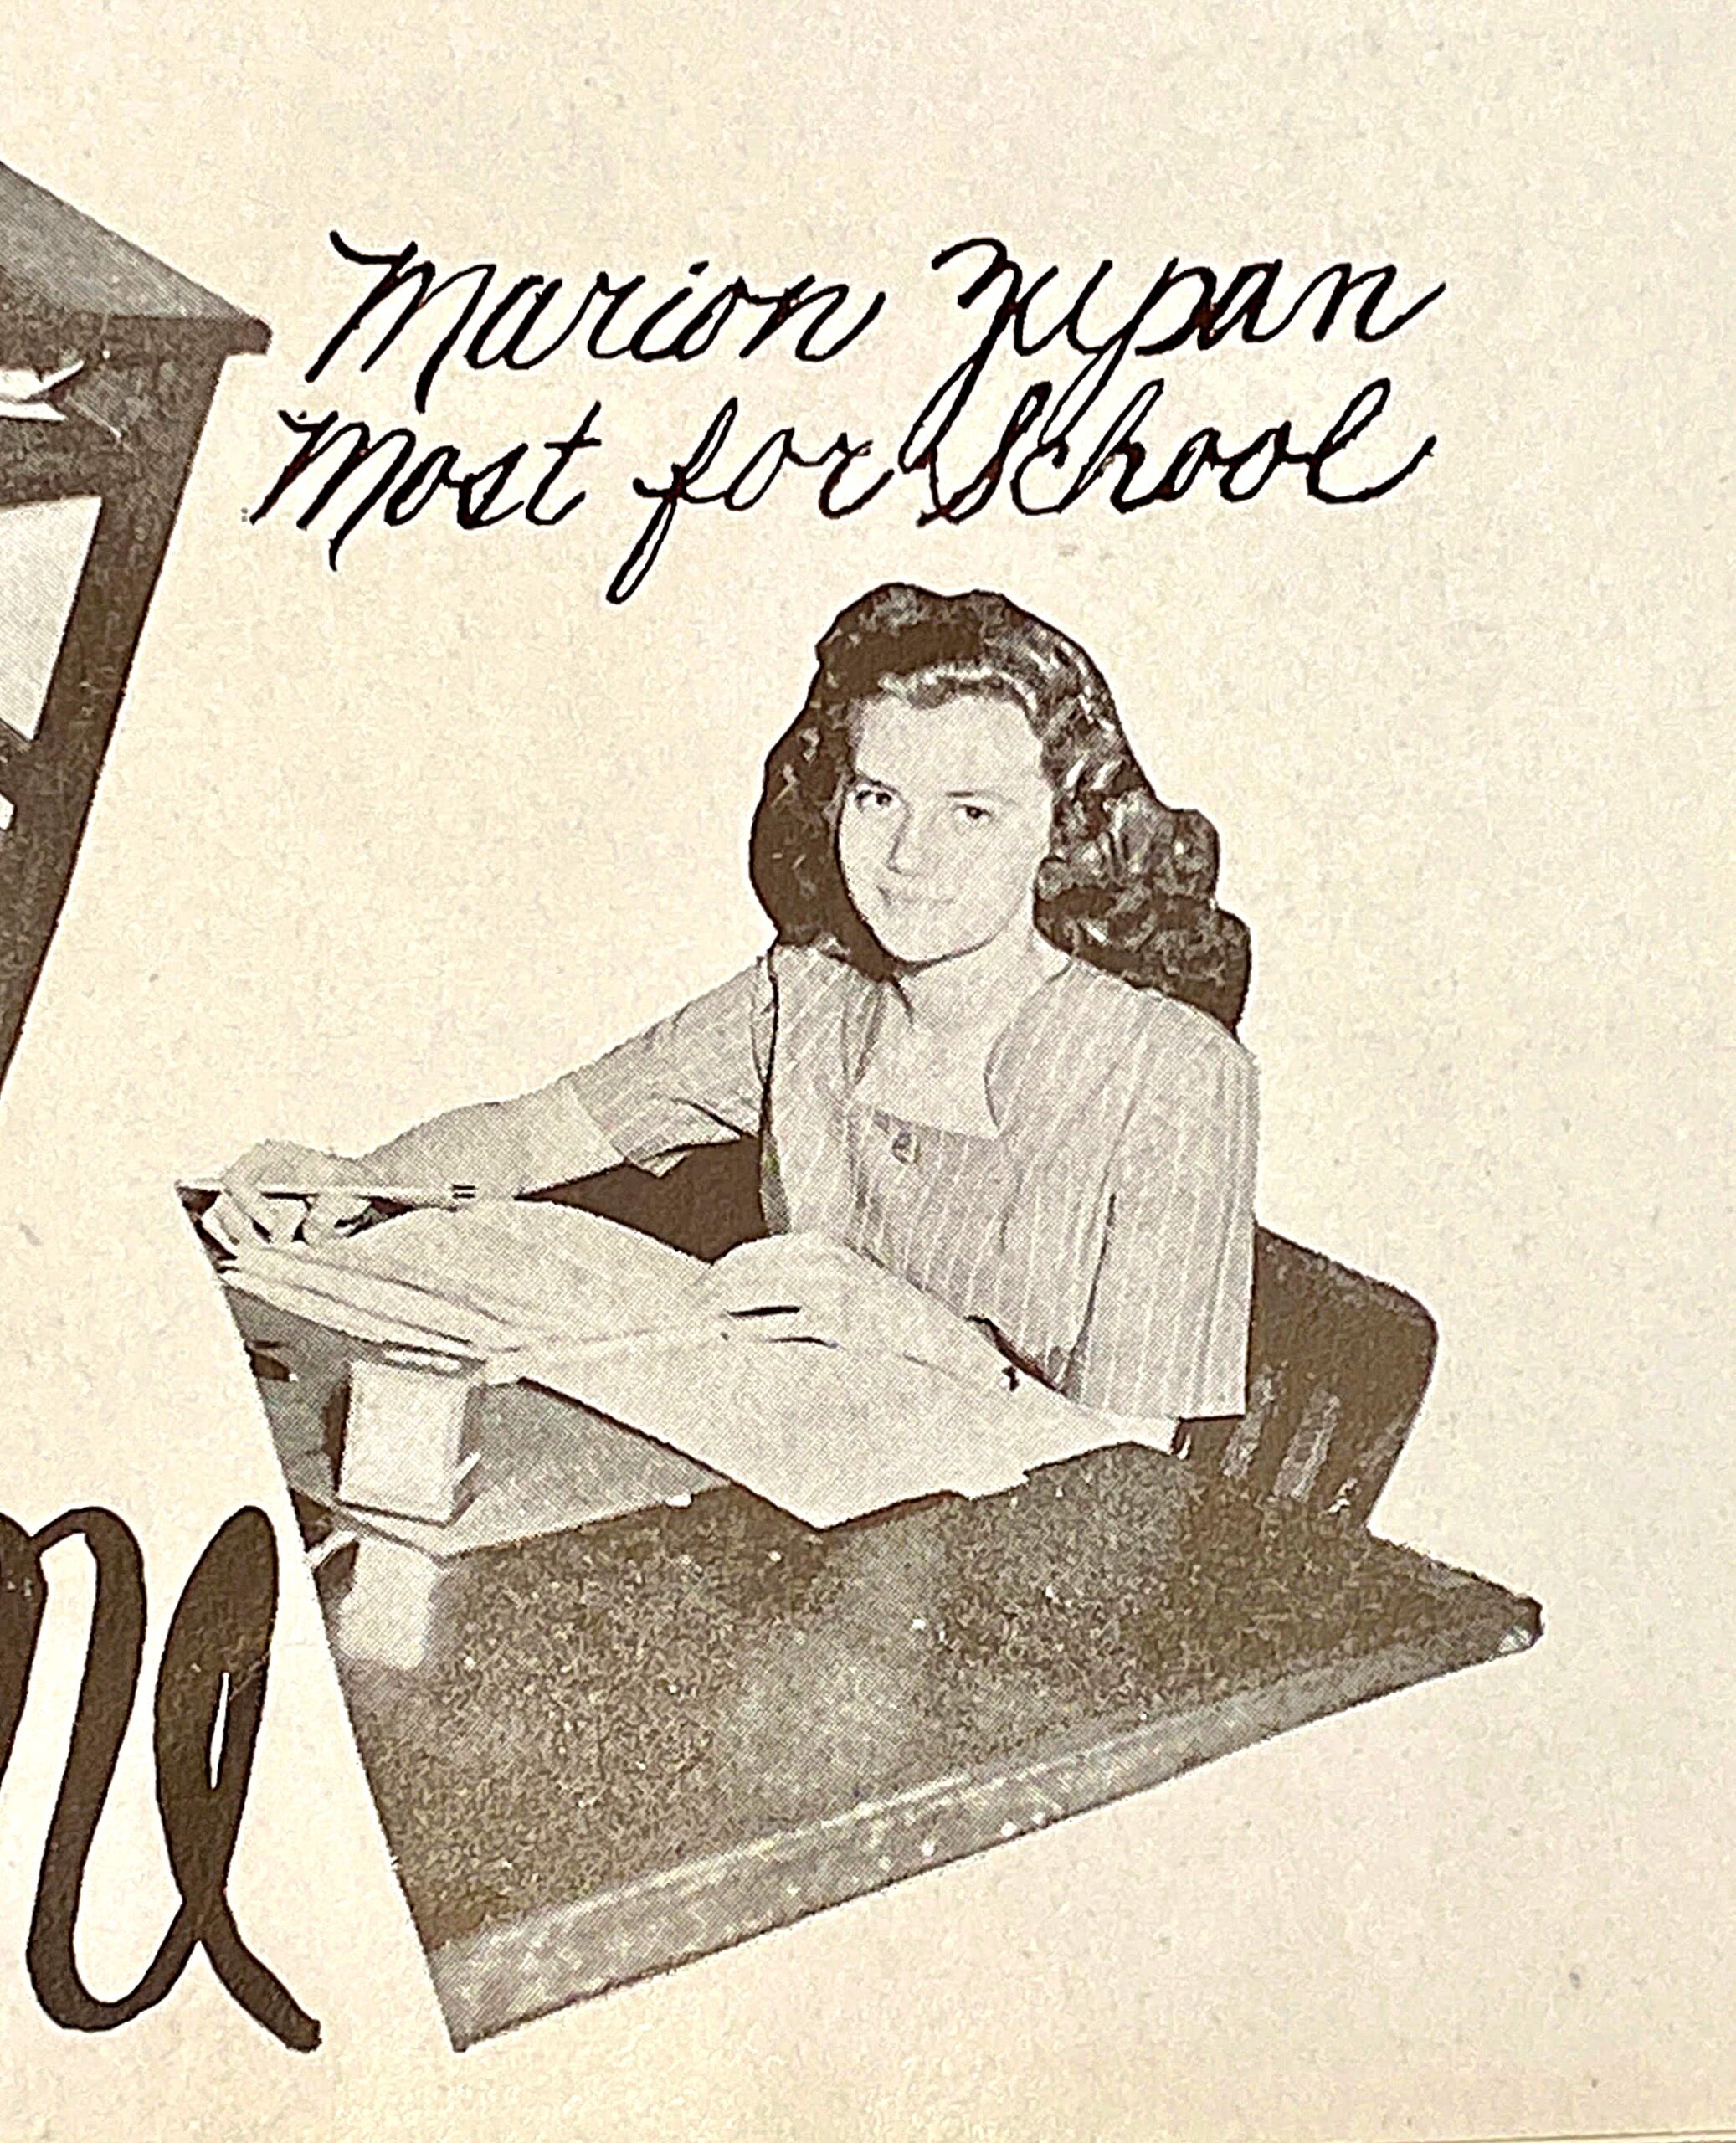 Marion Zupan
Most for School